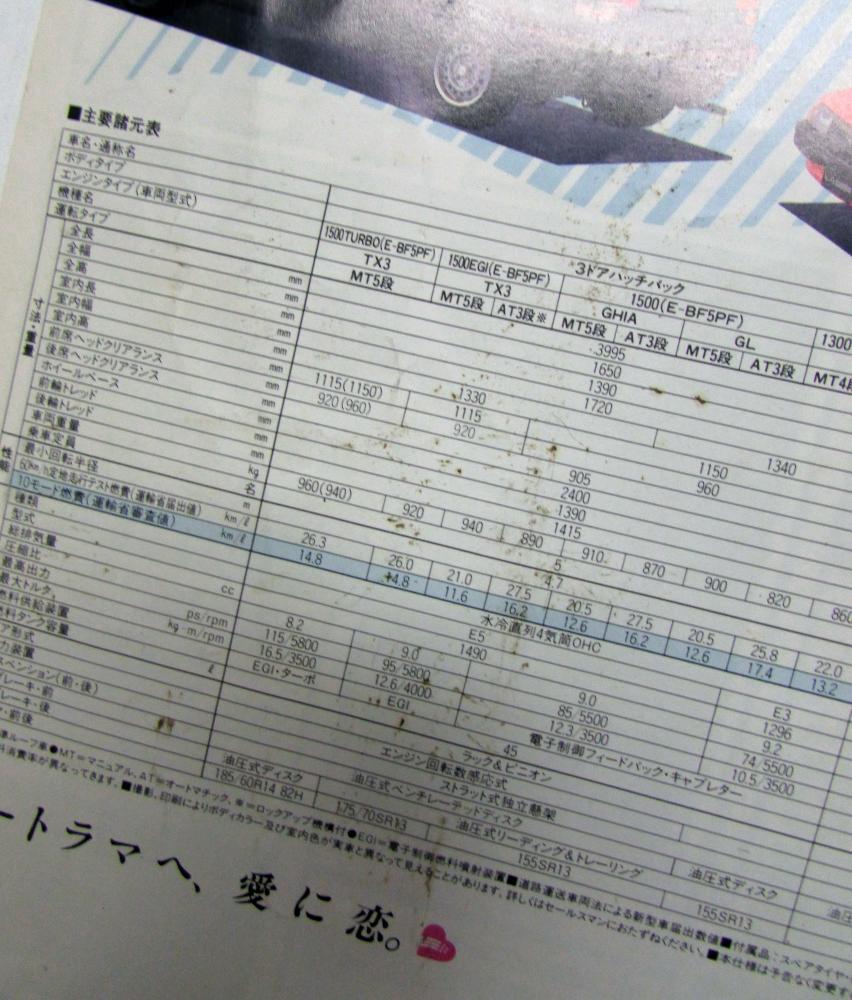 ■主要諸元表
車名・通称名
ボディタイプ
エンジンタイプ(車両型式)
機種名
運転タイプ
3ドアハッチバック
1500TURBO(E-BF5PF) 1500EGI(E-BF5PF) 1500(E-BF5PF) 1300
TX3 TX3 GHIA GL
MT5段 MT5段 AT3段※ MT5段 AT3段 MT5段 AT3段 MT4段
寸法・重量
全長 mm 3995
全幅 mm 1650
全高 mm 1390
室内長 mm 1720
室内幅 mm 1330 1340
室内高 mm 1115(1150) 1115 1150
前席ヘッドクリアランス mm 920(960) 920 960
後席ヘッドクリアランス mm 905
ホイールベース mm 2400
前輪トレッド mm 1390
後輪トレッド mm 1415
車両重量 kg 960(940) 920 940 890 910 870 900 820 860
乗車定員 名 5
最小回転半径 m 4.7
性能
60km/h定地走行テスト燃費(運輸省届出値) km/ℓ 26.3 26.0 21.0 27.5 20.5 27.5 20.5 25.8 22.0
10モード燃費(運輸省審査値) km/ℓ 14.8 14.8 11.6 16.2 12.6 16.2 12.6 17.4 13.2
種類 水冷直列4気筒OHC
型式 E5 E3
総排気量 cc 1490 1296
圧縮比 8.2 9.0 9.0 9.2
最高出力 ps/rpm 115/5800 95/5800 85/5500 74/5500
最大トルク kg・m/rpm 16.5/3500 12.6/4000 12.3/3500 10.5/3500
料供給装置 EGI・ターボ EGI 電子制御フィードバック・キャブレター
料タンク容量 ℓ 45
ア形式 ラック&ピニオン
力装置 エンジン回転数感応式
スペンション(前・後) ストラット式独立懸架
レーキ・前 油圧式ベンチレーテッドディスク 油圧式ディスク
レーキ・後 油圧式ディスク 油圧式リーディング&トレーリング
・前後 185/60R14 82H 175/70SR13 155SR13 155SR13
準ルーフ車●MT=マニュアル、AT=オートマチック、※=ロックアップ機構付●EGI=電子制御燃料噴射装置■道路運送車両法による新型車届出数値■付属品:スペアタイヤ・
料消費率が異なってきます。■撮影、印刷によりボディカラー及び室内色が実車と異なって見えることがあります。詳しくはセールスマンにおたずねください。■本仕様は予告なく変更す
ートラマへ、愛に恋。